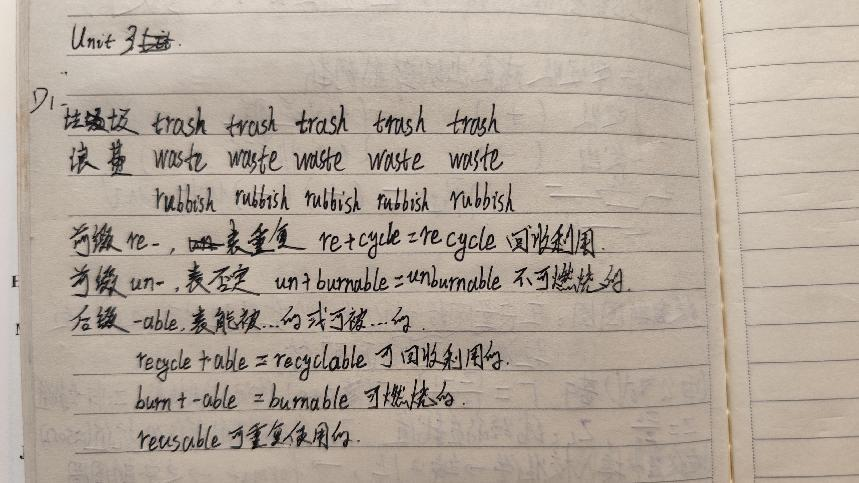 Unit 3
D1-
垃圾 trash trash trash trash trash
浪费 waste waste waste waste waste
rubbish rubbish rubbish rubbish rubbish
前缀 re-, 表重复 re+cycle=recycle 回收利用.
前缀 un-, 表否定 un+burnable=unburnable 不可燃烧的.
后缀 -able, 表能被...的或可被...的.
recycle+able=recyclable 可回收利用的.
burn+-able=burnable 可燃烧的.
reusable 可重复使用的.